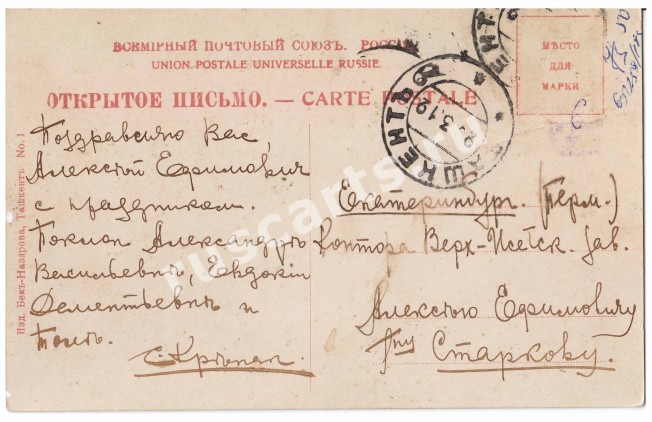 ВСЕМІРНЫЙ ПОЧТОВЫЙ СОЮЗЪ. РОССІЯ
UNION POSTALE UNIVERSELLE RUSSIE.
ОТКРЫТОЕ ПИСЬМО. — CARTE POSTALE
МѢСТО
ДЛЯ
МАРКИ
ТАШКЕНТЪ
Изд. Бекъ-Назарова, Ташкентъ No. 1
Поздравляю Вас,
Алексѣй Ефимович
с праздником.
Поклон Александрѣ
Васильевнѣ, Евдокіи
Дементьевнѣ и
Толѣ.
Екатеринбург. (Перм.)
Контора Верх-Исетск. зав.
Алексѣю Ефимовичу
Гну Старкову.
ruscarts.ru